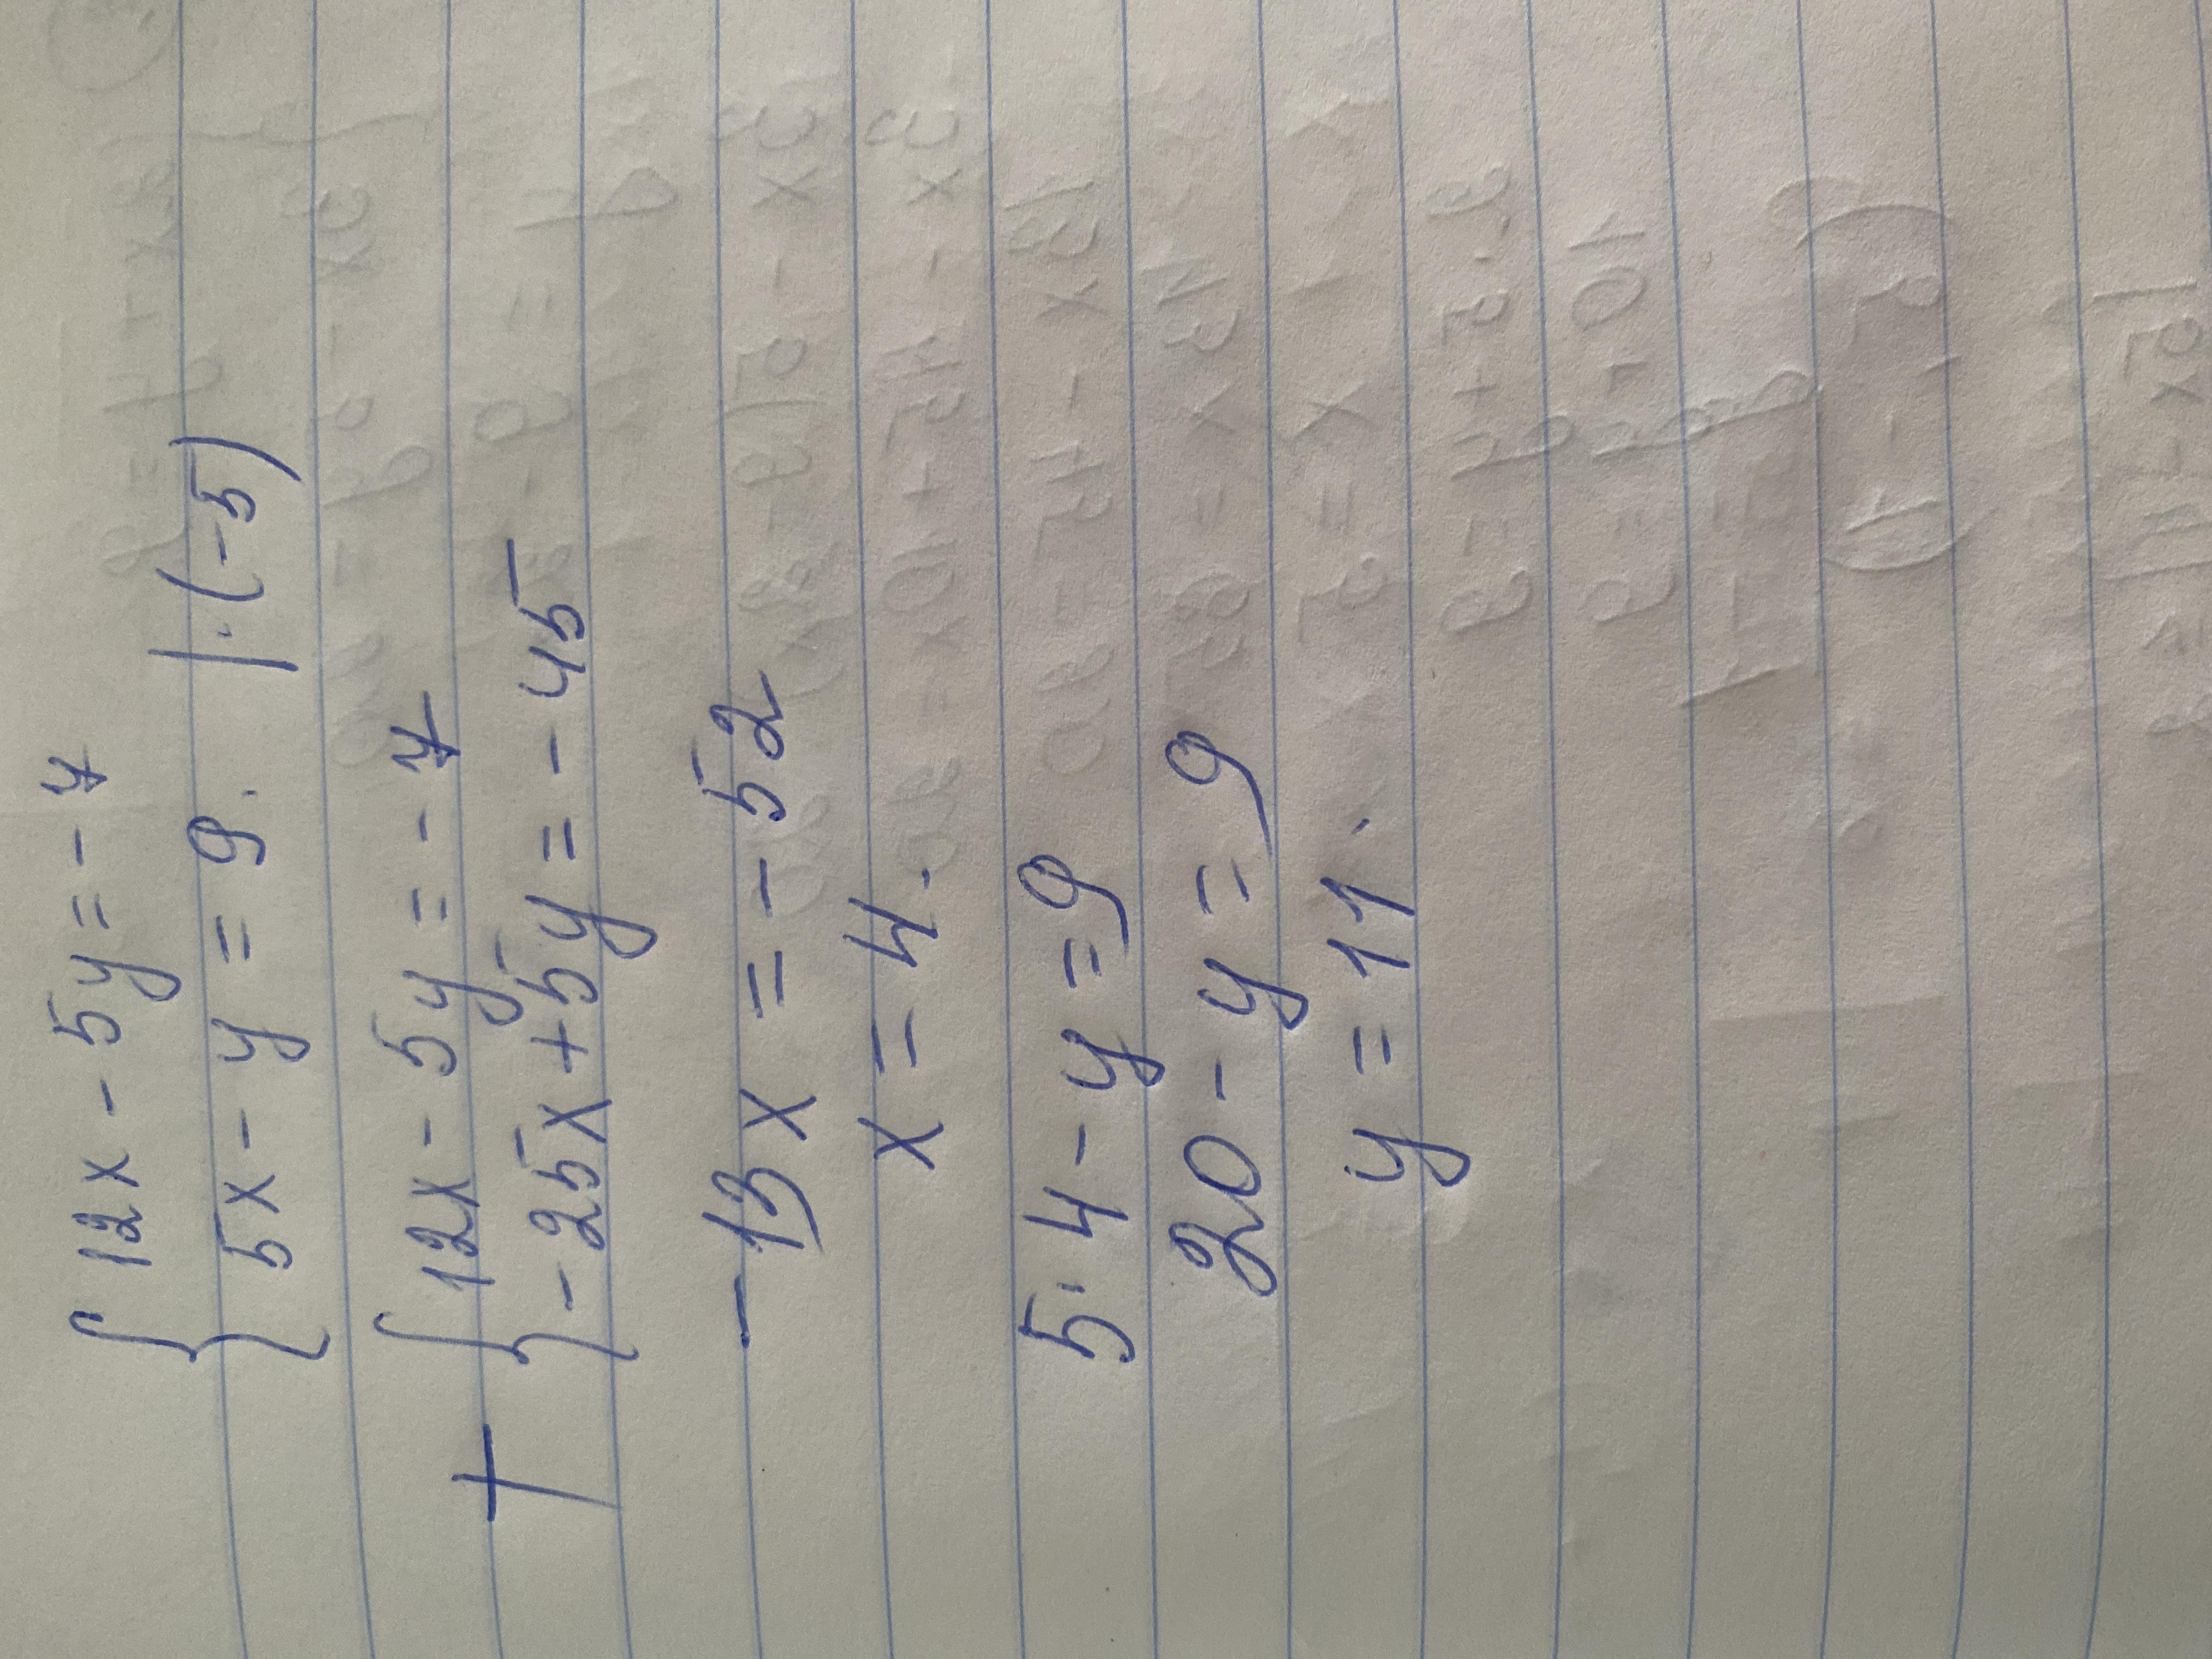 { 12x - 5y = - 7
5x - y = 9. | · (-5)
+ { 12x - 5y = - 7
- 25x + 5y = - 45
- 13x = - 52
x = 4.
5 · 4 - y = 9
20 - y = 9
y = 11.